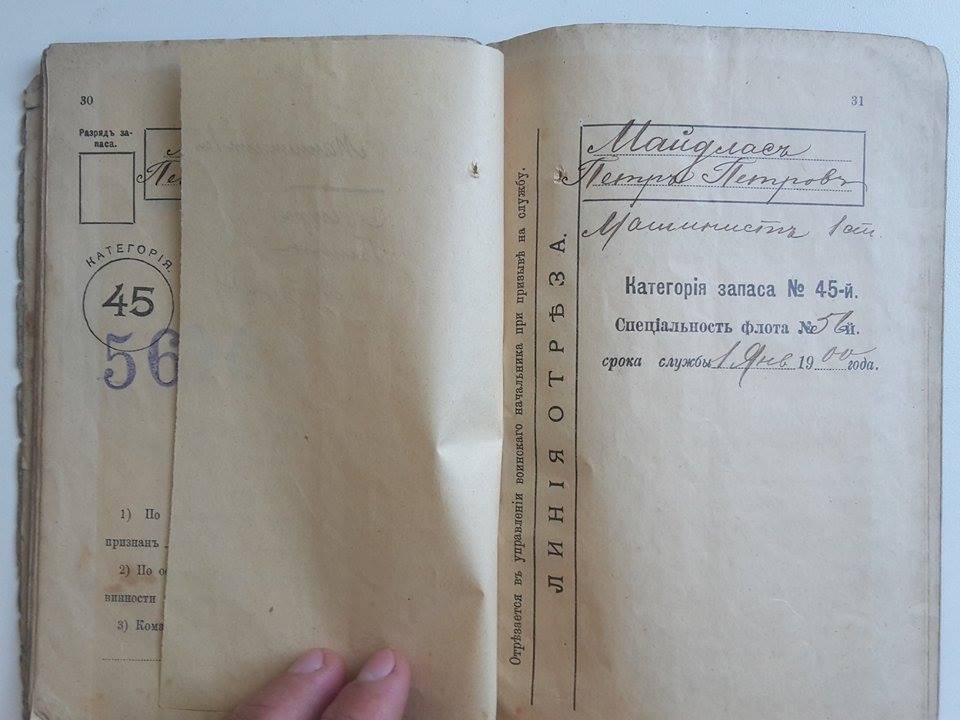 30
Разрядъ за-
паса.
Пе
КАТЕГОРІЯ.
45
56
1) По
признанъ
2) По о
винности
3) Кома
31
Отрѣзается въ управленіи воинскаго начальника при призывѣ на службу.
ЛИНІЯ ОТРѢЗА.
Майдласъ
Петръ Петровъ
Машинистъ 1 ст.
Категорія запаса № 45-й.
Спеціальность флота № 56й.
срока службы 1 Янв 1900 года.